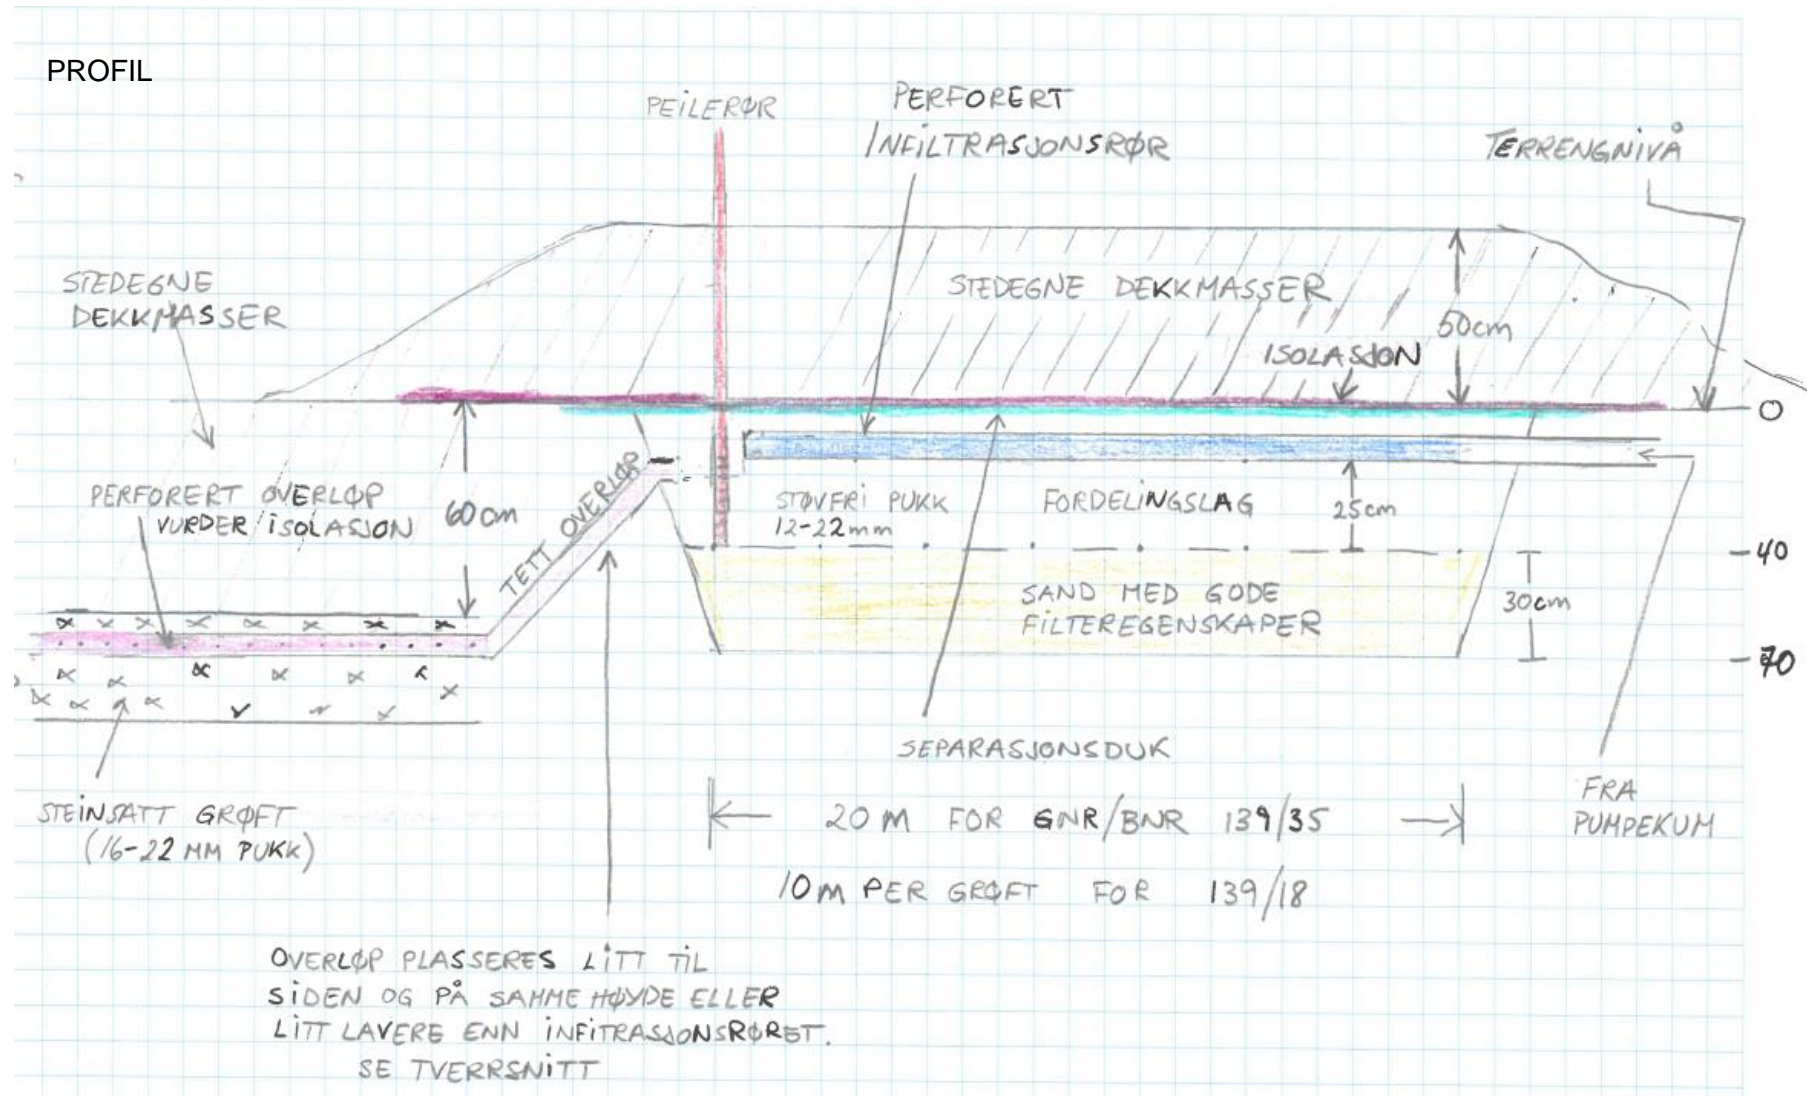 PROFIL
PEILERØR
PERFORERT
INFILTRASJONSRØR
TERRENGNIVÅ
STEDEGNE
DEKKMASSER
STEDEGNE DEKKMASSER
50cm
ISOLASJON
0
PERFORERT OVERLØP
VURDER ISOLASJON
60cm
TETT OVERLØP
STØVFRI PUKK
12-22mm
FORDELINGSLAG
25cm
-40
SAND MED GODE
FILTEREGENSKAPER
30cm
-70
SEPARASJONSDUK
STEINSATT GRØFT
(16-22 MM PUKK)
20 M FOR GNR/BNR 139/35
FRA
PUMPEKUM
10 M PER GRØFT FOR 139/18
OVERLØP PLASSERES LITT TIL
SIDEN OG PÅ SAMME HØYDE ELLER
LITT LAVERE ENN INFITRASJONSRØRET.
SE TVERRSNITT